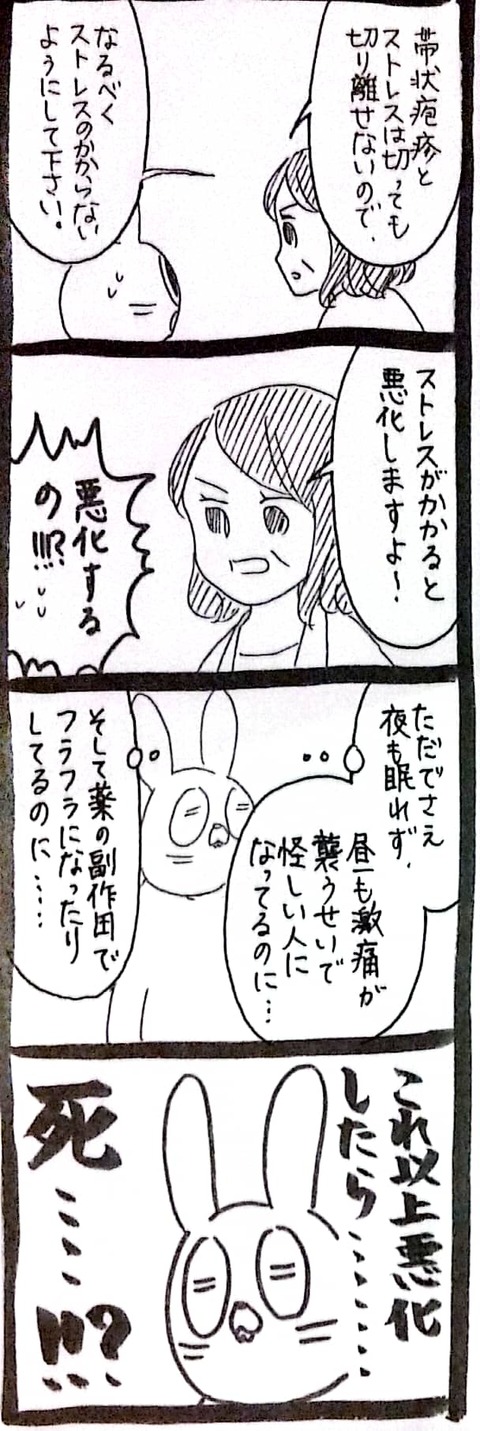 帯状疱疹と
ストレスは切っても
切り離せないので、
なるべく
ストレスのかからない
ようにして下さい。
ストレスがかかると
悪化しますよ〜
悪化する
の!!!?
ただでさえ
夜も眠れず、
昼も激痛が
襲うせいで
怪しい人に
なってるのに…
そして薬の副作用で
フラフラになったり
してるのに……
これ以上悪化
したら………
死……!!?